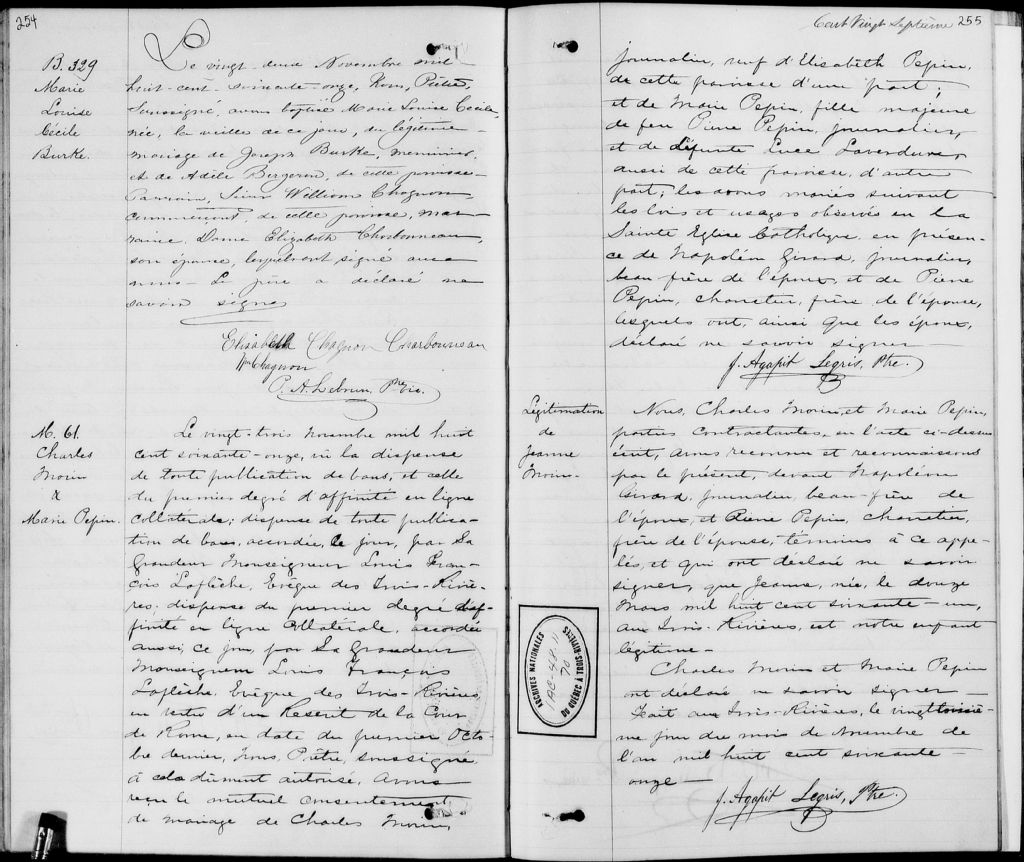 254
B. 329
Marie
Louise
Cécile
Burke.
Le vingt-deux Novembre mil
huit-cent-soixante-onze, Nous, Prêtre,
soussigné, avons baptisé Marie Louise Cécile,
née, la veille de ce jour, du légitime
mariage de Joseph Burke, menuisier,
et de Adèle Bergeron, de cette paroisse—
Parrain, Sieur William Chagnon
commerçant, de cette paroisse, mar-
raine, Dame Elizabeth Charbonneau,
son épouse, lesquels ont signé avec
nous— Le père a déclaré ne
savoir signer
Elisabeth Chagnon Charbonneau
Wm Chagnon
P. A. Lebrun, Ptre Vic.
M. 61.
Charles
Morin
&
Marie Pepin.
Le vingt-trois Novembre mil huit
cent soixante-onze, vu la dispense
de toute publication de bans, et celle
du premier degré d'affinité en ligne
collatérale; dispense de toute publica-
tion de bans, accordée, ce jour, par Sa
Grandeur Monseigneur Louis Fran-
çois Laflèche, Evêque des Trois-Riviè-
res; dispense du premier degré d'af-
finité en ligne collatérale, accordée
aussi, ce jour, par Sa Grandeur
Monseigneur Louis François
Laflèche, Evêque des Trois-Rivières,
en vertu d'un Rescrit de la Cour
de Rome, en date du premier Octo-
bre dernier, Nous, Prêtre, soussigné,
à cela dûment autorisé, avons
reçu le mutuel consentement
de mariage de Charles Morin,
Cent Vingt Septième 255
journalier, veuf d'Elisabeth Pepin,
de cette paroisse d'une part;
et de Marie Pepin, fille majeure
de feu Pierre Pepin, journalier,
et de défunte Luce Laverdure,
aussi de cette paroisse, d'autre
part; les avons mariés suivant
les lois et usages observés en la
Sainte Eglise Catholique, en présen-
ce de Napoléon Girard, journalier,
beau-frère de l'époux, et de Pierre
Pepin, charretier, frère de l'épouse,
lesquels ont, ainsi que les époux,
déclaré ne savoir signer—
J. Agapit Legris, Ptre.
Légitimation
de
Jeanne
Morin.
Nous, Charles Morin, et Marie Pepin,
parties contractantes, en l'acte ci-dessus
écrit, avons reconnu et reconnaissons
par le présent, devant Napoléon
Girard, journalier, beau-frère de
l'époux, et Pierre Pepin, charretier,
frère de l'épouse, témoins à ce appe-
lés, et qui ont déclaré ne savoir
signer, que Jeanne, née, le douze
Mars mil huit cent soixante-un,
aux Trois-Rivières, est notre enfant
légitime—
Charles Morin et Marie Pepin
ont déclaré ne savoir signer—
Fait aux Trois-Rivières, le vingt-troisiè-
me jour du mois de Novembre de
l'an mil huit cent soixante-
onze—
J. Agapit Legris, Ptre.
ARCHIVES NATIONALES
DU QUÉBEC À TROIS-RIVIÈRES